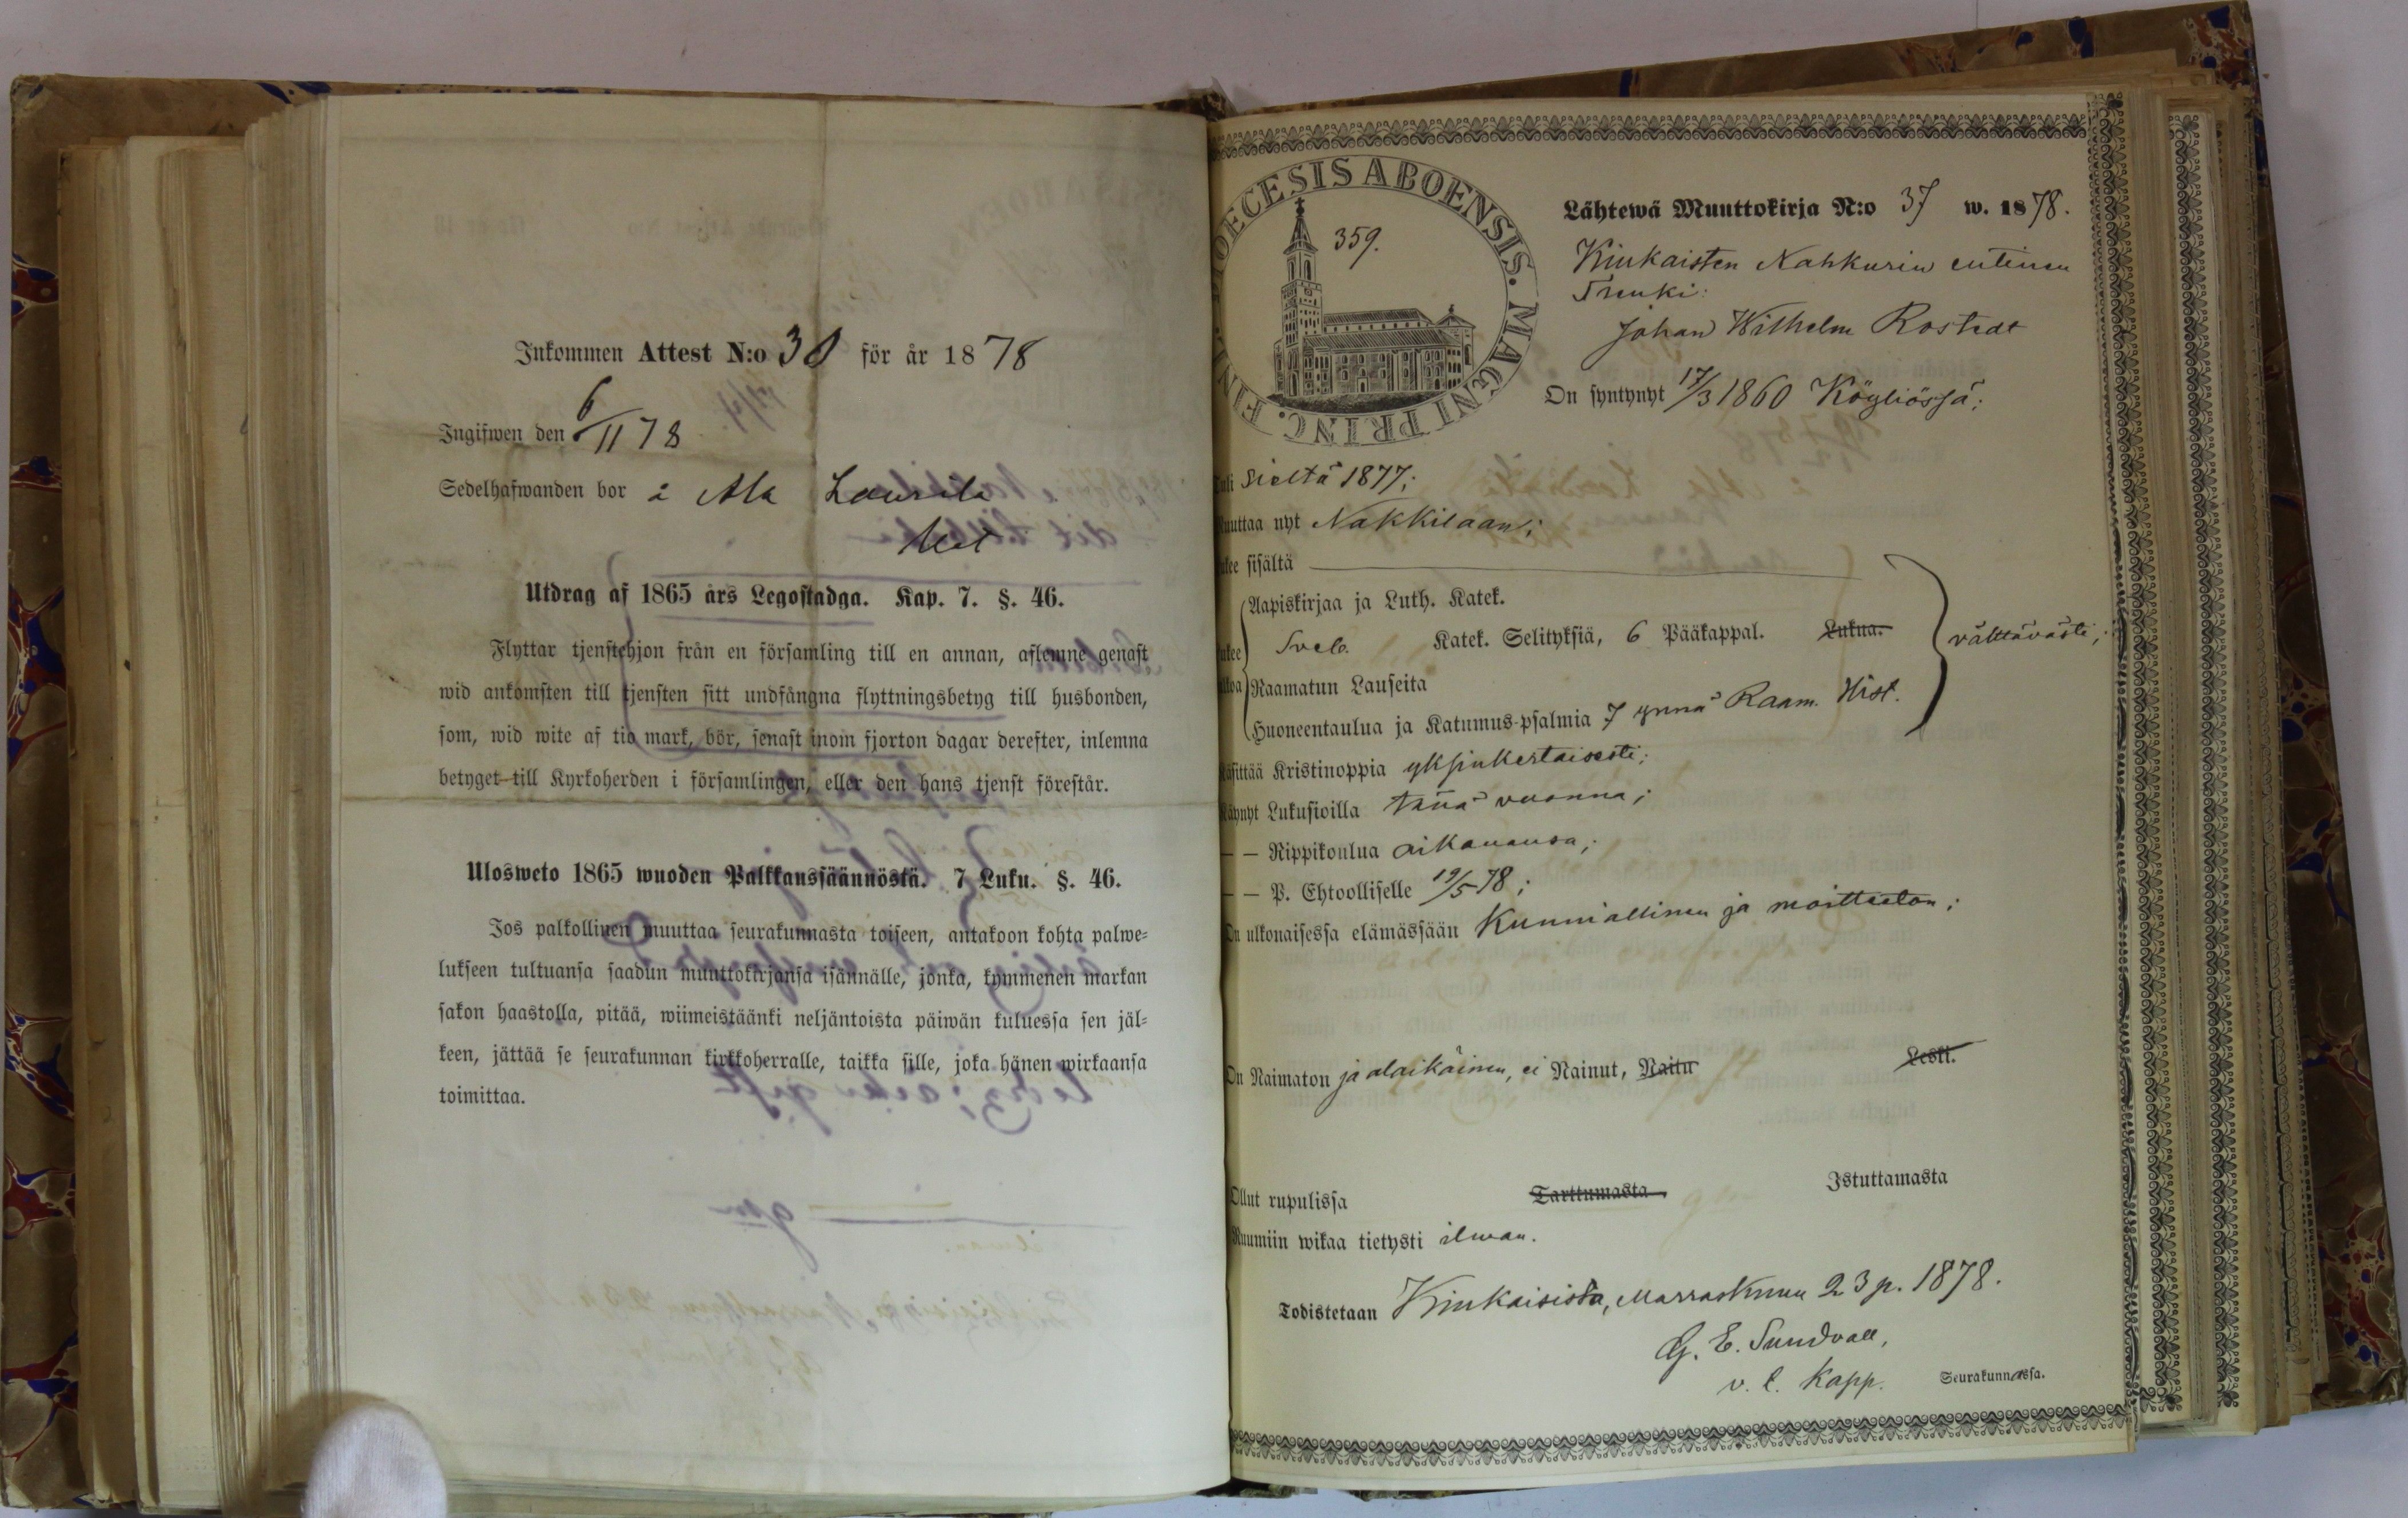 Inkommen Attest N:o 30 för år 1878
Ingifwen den 6/11 78
Sedelhafwanden bor å Ala Laurila
Utdrag af 1865 års Legostadga. Kap. 7. §. 46.
Flyttar tjenstehjon från en församling till en annan, aflemne genast
wid ankomsten till tjensten sitt undfångna flyttningsbetyg till husbonden,
som, wid wite af tio mark, bör, senast inom fjorton dagar derefter, inlemna
betyget till Kyrkoherden i församlingen, eller den hans tjenst förestår.
Ulosweto 1865 wuoden Palkkanssäännöstä. 7 Luku. §. 46.
Jos palkollinen muuttaa seurakunnasta toiseen, antakoon kohta palwe-
lukseen tultuansa saadun muuttokirjansa isännälle, jonka, kymmenen markan
sakon haastolla, pitää, wiimeistäänki neljäntoista päiwän kuluessa sen jäl-
keen, jättää se seurakunnan kirkkoherralle, taikka sille, joka hänen wirkaansa
toimittaa.
DIOECESIS ABOENSIS. MAGNI PRINC. FINL.
359.
Lähtewä Muuttokirja N:o 37 w. 1878.
Kiukaisten Nahkurin entinen
Trenki:
Johan Wilhelm Rostedt
On syntynyt 17/3 1860 Köyliössä;
Tuli sieltä 1877;
Muuttaa nyt Nakkilaan;
Lukee sisältä
Aapiskirjaa ja Luth. Katek.
Lukee Sveb. Katek. Selityksiä, 6 Pääkappal. Lukua. välttävästi;
ulkoa Raamatun Lauseita
Huoneentaulua ja Katumus-psalmia 7 ynnä Raam. Hist.
Käsittää Kristinoppia yksinkertaisesti;
Käynyt Lukusioilla tänä vuonna;
— — Rippikoulua aikanansa;
— — P. Ehtoolliselle 19/5 78;
On ulkonaisessa elämässään Kunniallinen ja moitteeton;
On Naimaton ja alaikäinen, ei Nainut, Naitu Leski.
Ollut rupulissa Tarttumasta Istuttamasta
Ruumiin wikaa tietysti ilman.
Todistetaan Kiukaisista, Marraskuun 23 p. 1878.
G. E. Sundvall,
v. t. Kapp. Seurakunnassa.